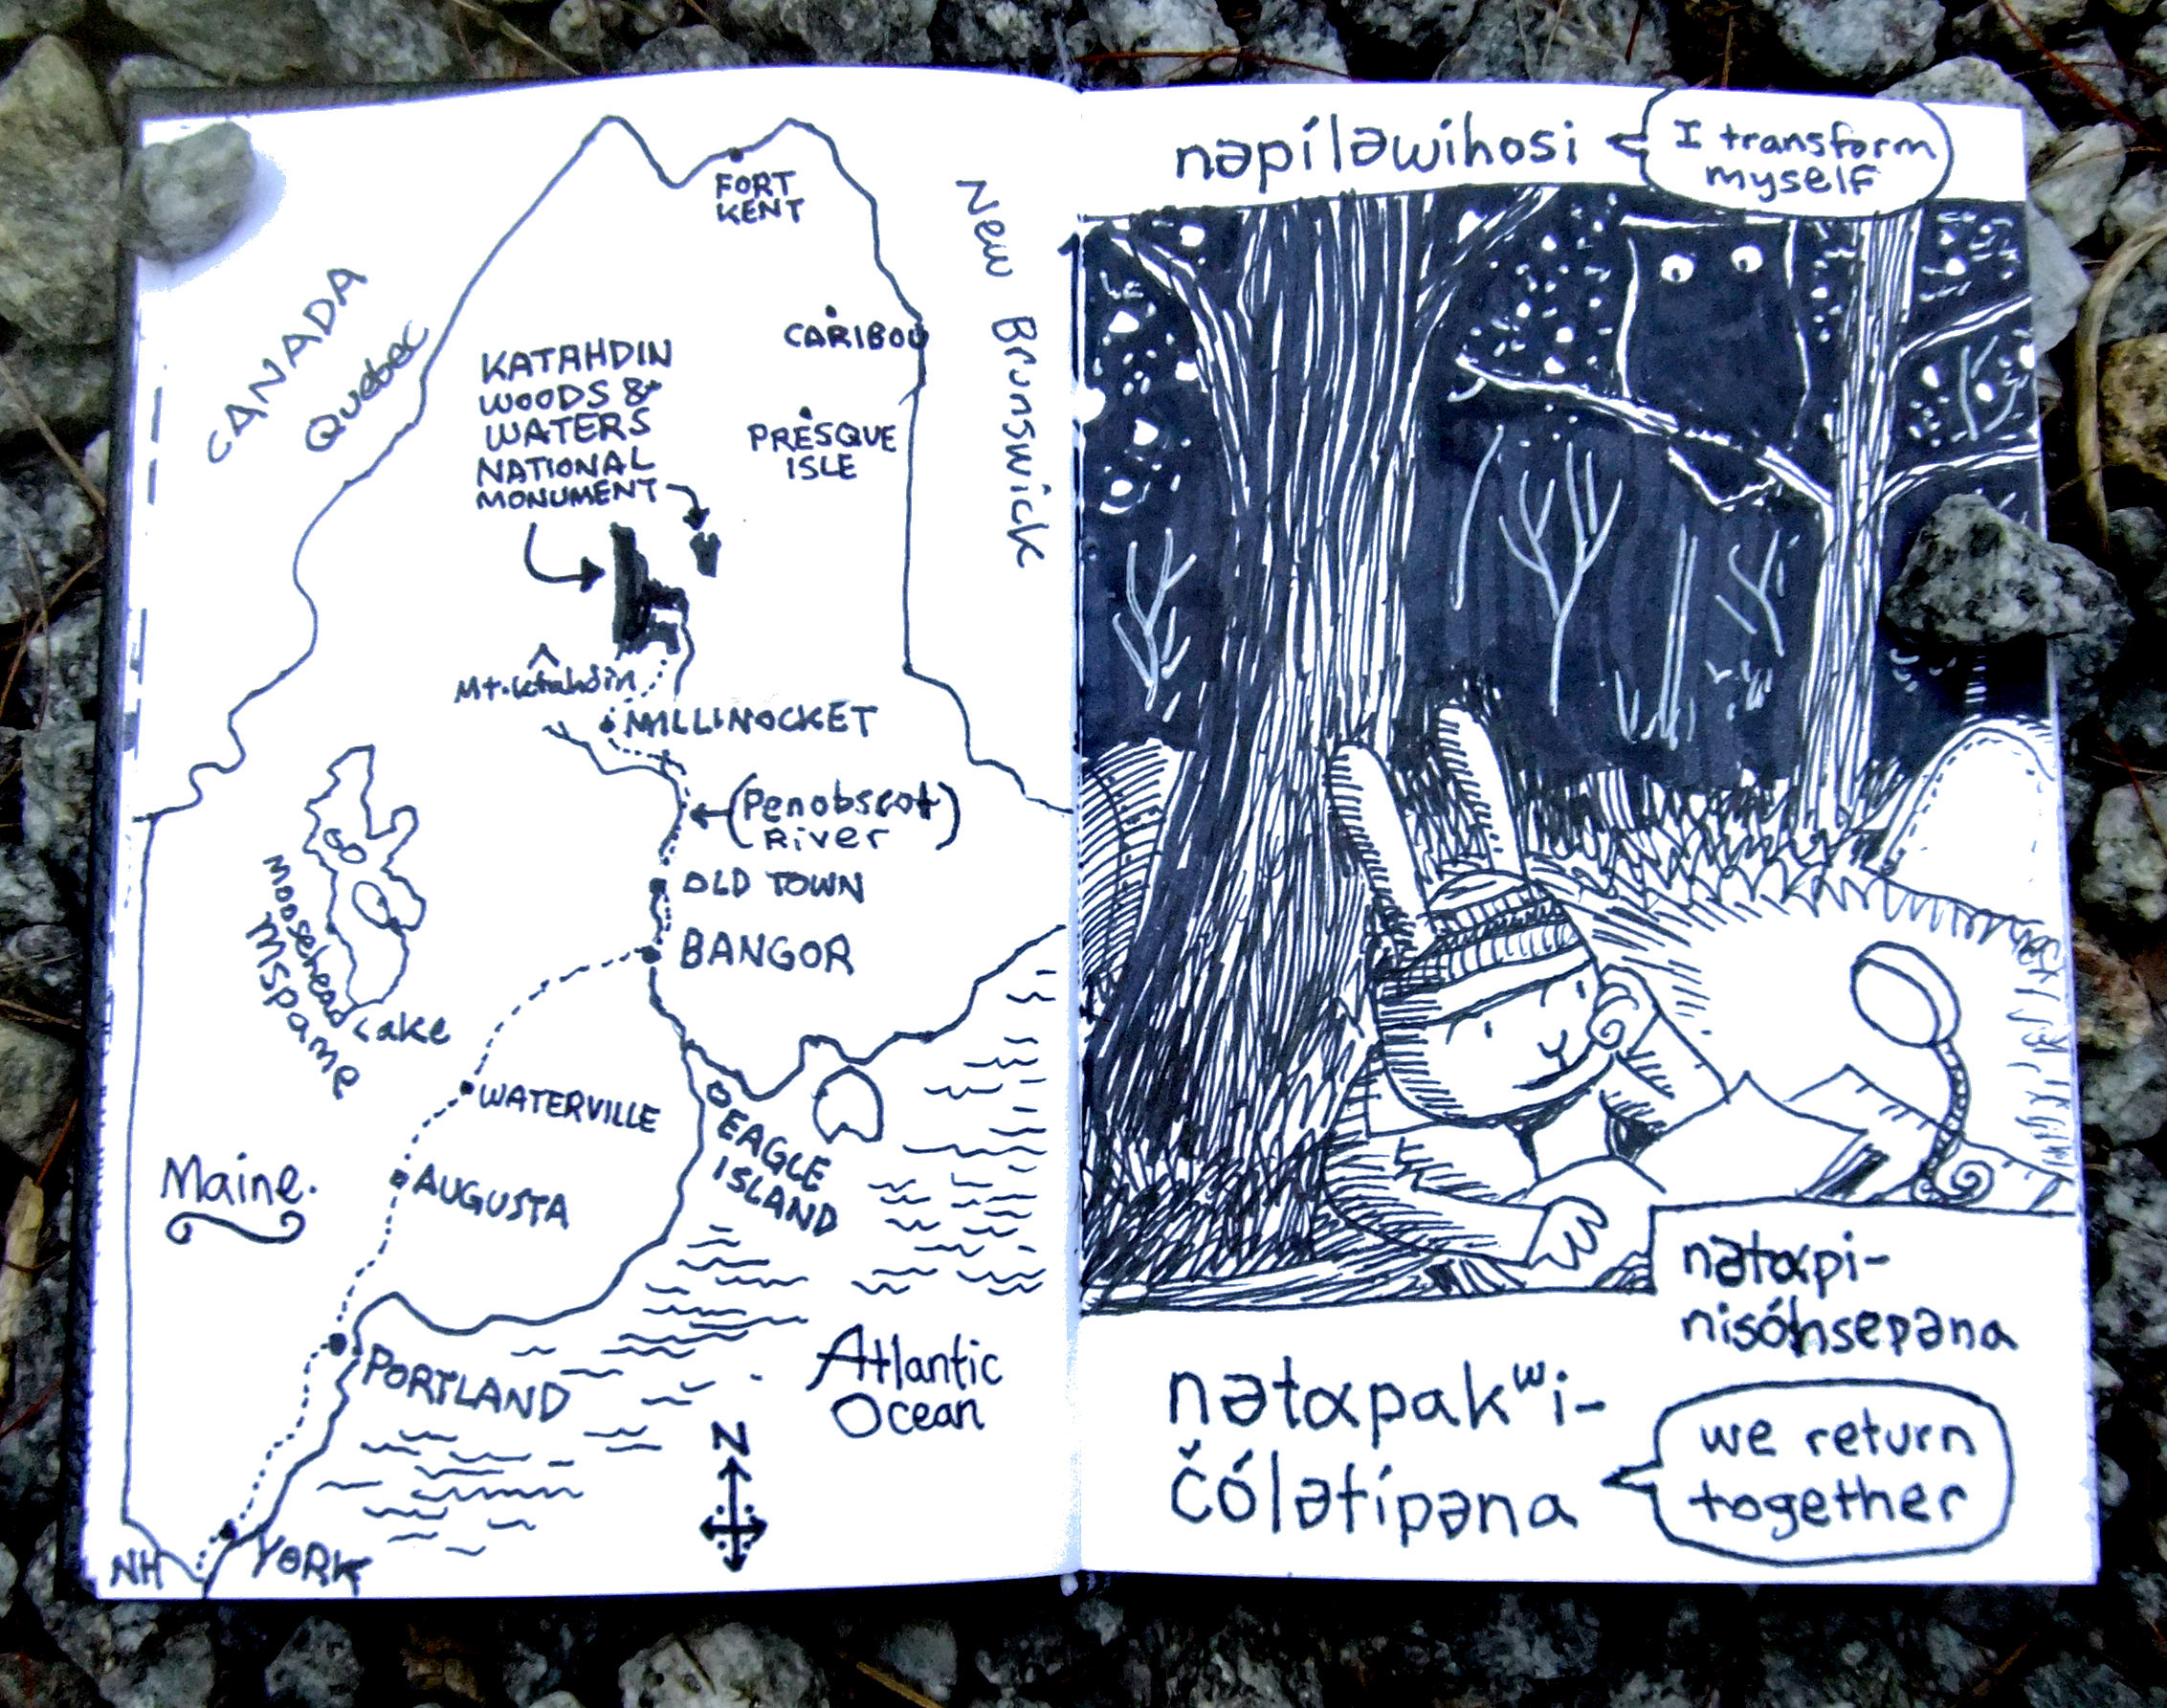 FORT
KENT
CANADA
Quebec
New Brunswick
CARIBOU
PRESQUE
ISLE
KATAHDIN
WOODS &
WATERS
NATIONAL
MONUMENT
Mt. Katahdin
MILLINOCKET
(Penobscot
River)
OLD TOWN
BANGOR
Moosehead Lake
Mspame
WATERVILLE
EAGLE
ISLAND
AUGUSTA
Maine.
PORTLAND
Atlantic
Ocean
N
NH
YORK
nəpíləwihosi
I transform
myself
nətαpi-
nisóhsepəna
nətαpakʷi-
čólətípəna
we return
together